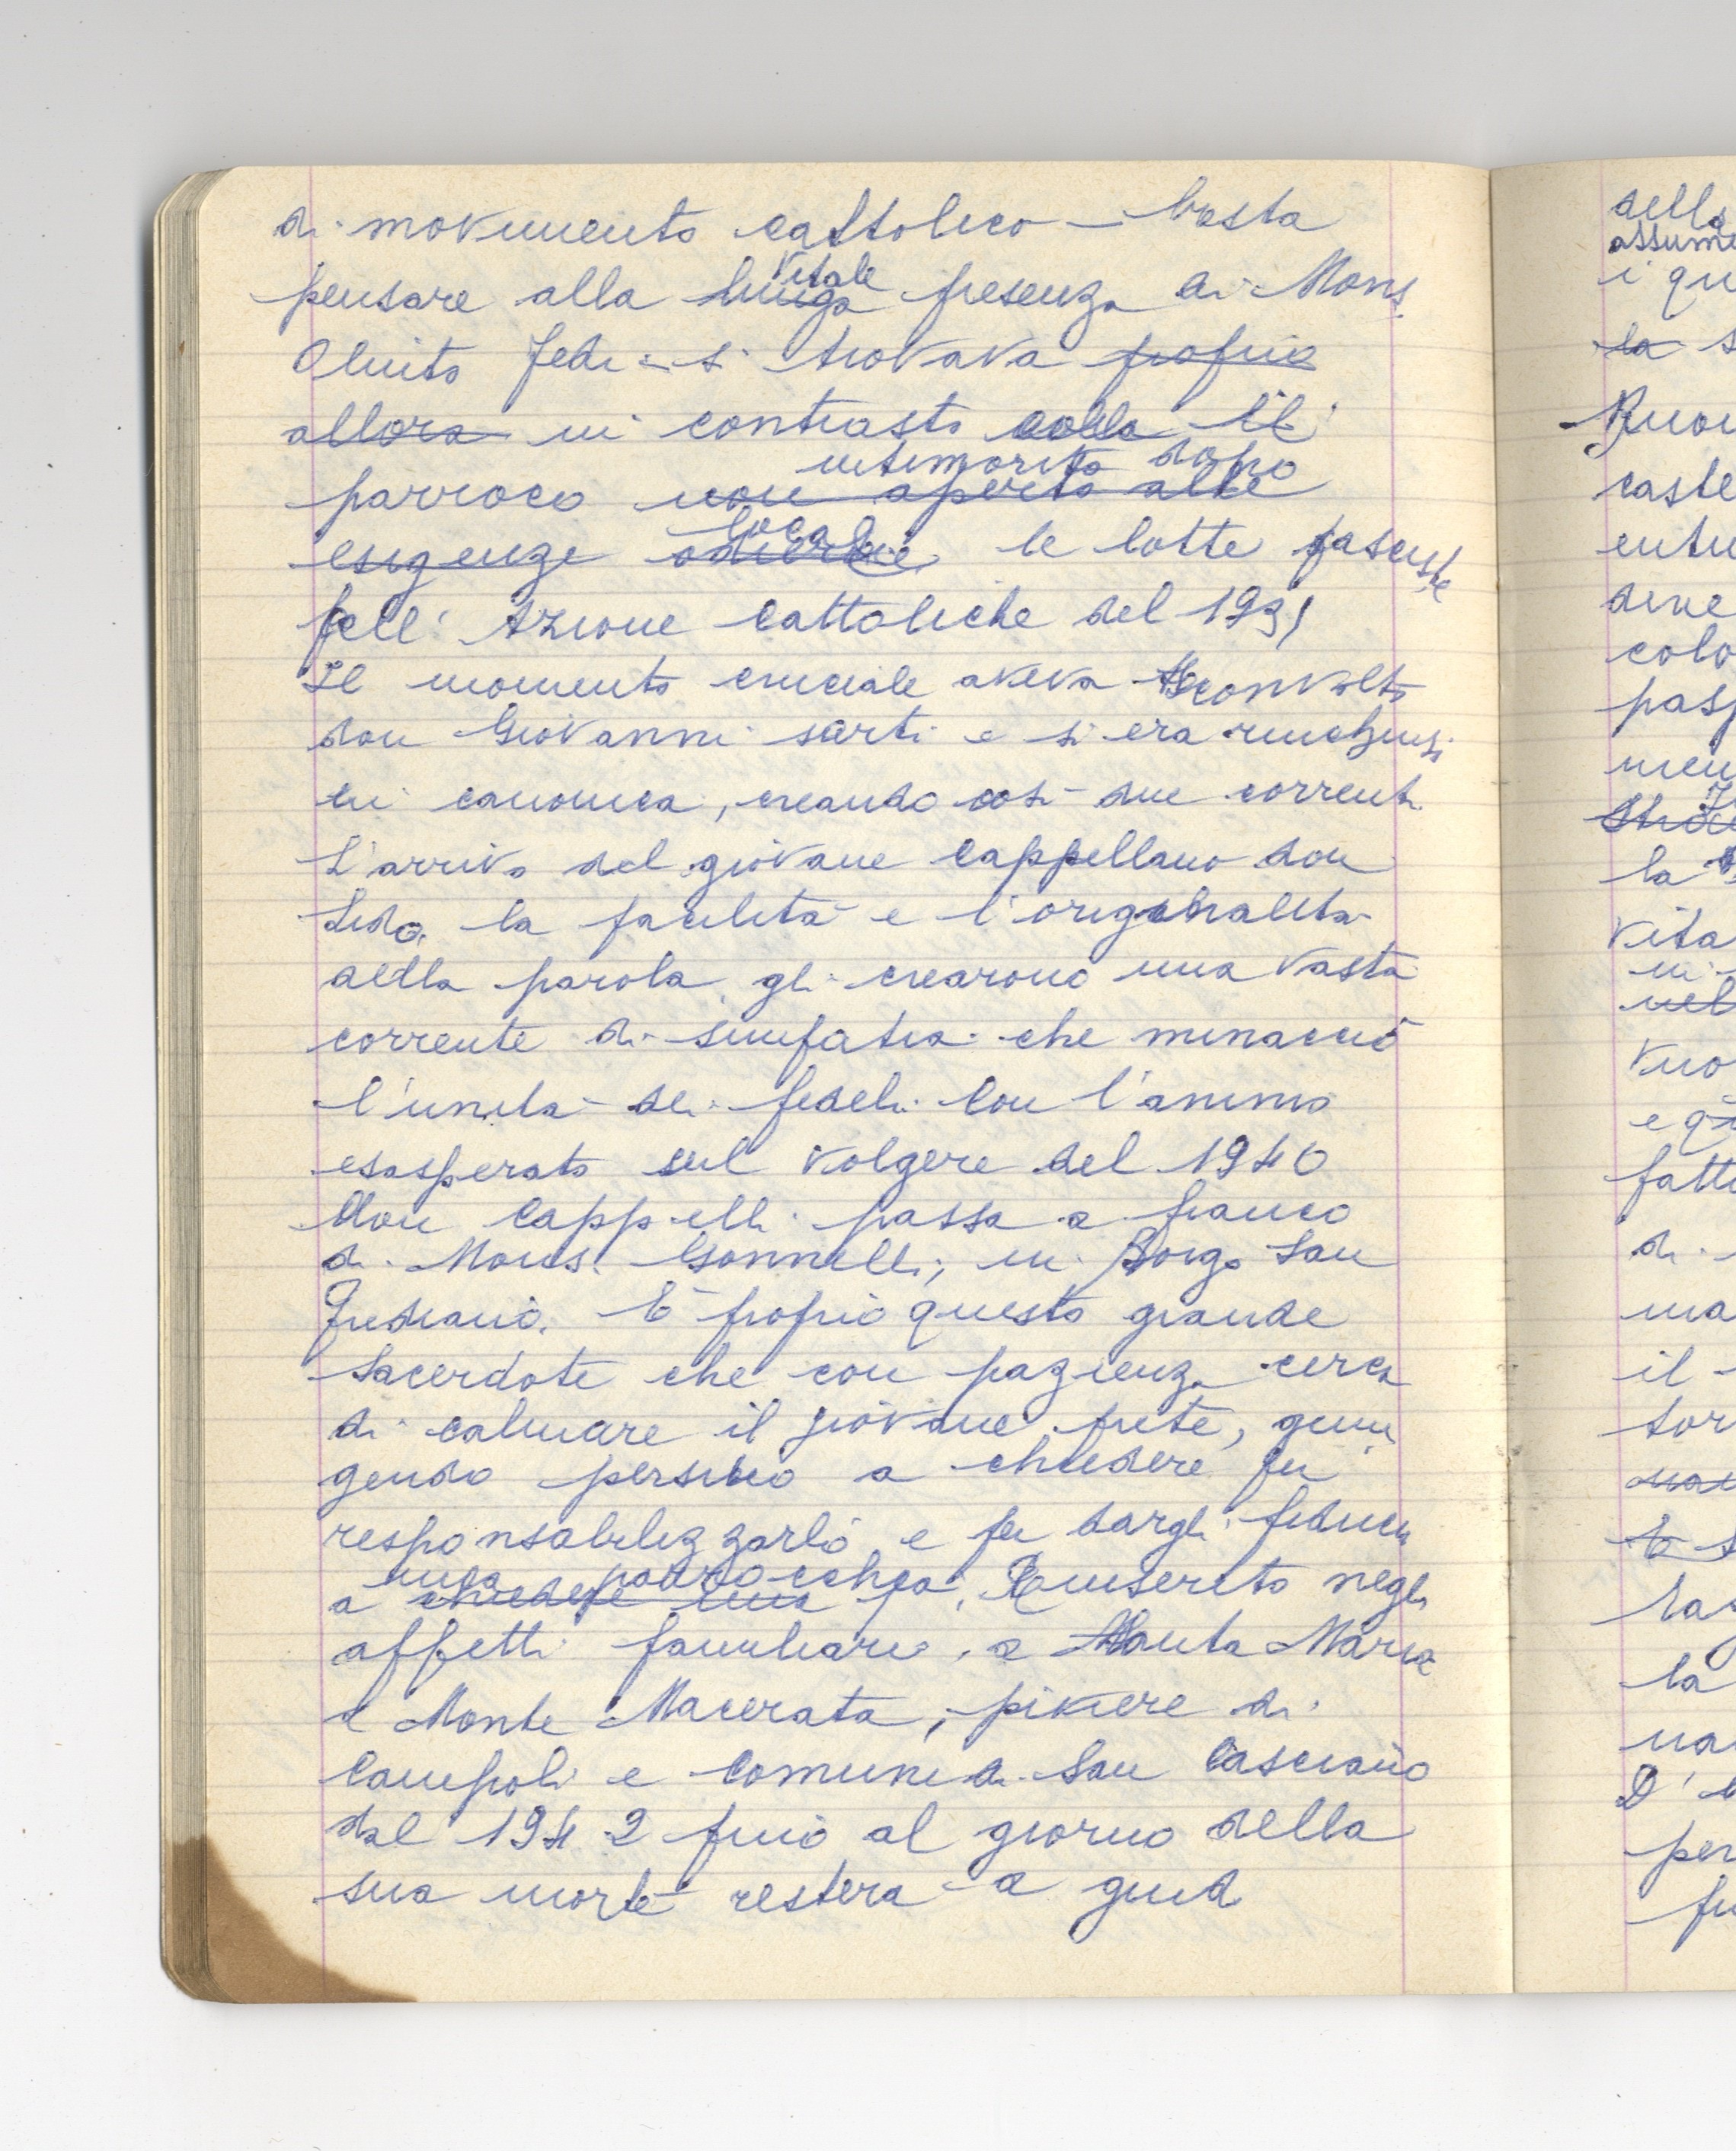 di movimento cattolico – basta
pensare alla lunga vitale presenza di Mons.
Olinto Fedi – si trovava proprio
allora in contrasto colla il
parroco non aperto alle intimorito dopo
esigenze locali le lotte fasciste
pell'Azione Cattoliche del 1931
Il momento cruciale aveva sconvolto
don Giovanni sarti e si era rinchiuso
in canonica, creando così due correnti
L'arrivo del giovane cappellano don
Lido, la facilità e l'originalità
della parola, gli crearono una vasta
corrente di simpatia che minacciò
l'unità dei fedeli. Con l'animo
esasperato sul volgere del 1940
don Cappelli passa a fianco
di Mons. Gonnelli, in Borgo San
Frediano. È proprio questo grande
Sacerdote che con pazienza cerca
di calmare il giovane prete, giun
gendo persino a chiedere per
responsabilizzarlo e per dargli fiducia
una parrocchia
a chiedere una pa. Reinserito negli
affetti familiari, a Santa Maria
a Monte Macerata, piviere di
Campoli e Comune di San Casciano
dal 1942 fino al giorno della
sua morte resterà a guid
della
assume
i qu
la s
caste
entu
dive
colo
pasp
men
la
vita
in
nel
vuo
fatt
di
ma
il
tor
la
na
D'
per
fu